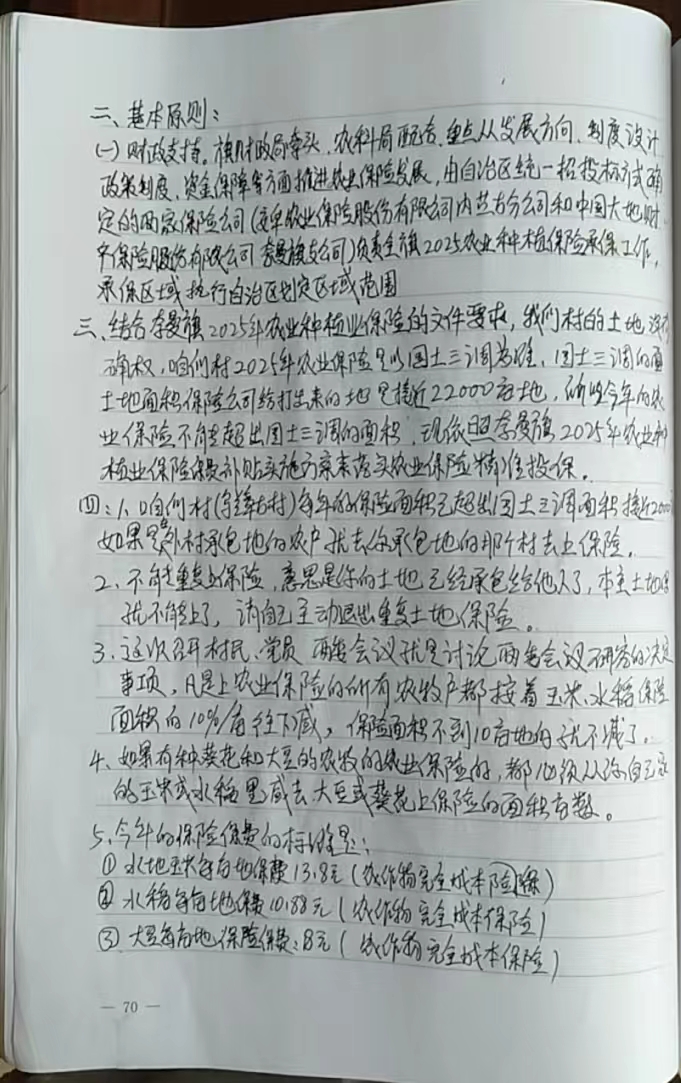 二、基本原则：
(一) 财政支持。旗财政局牵头、农科局配合、重点从发展方向、制度设计
政策制度、资金保障等方面推进农业保险发展，由自治区统一招投标方式确
定的两家保险公司(农业保险股份有限公司内蒙古分公司和中国大地财
产保险股份有限公司奈曼旗支公司)负责全旗2025农业种植保险承保工作，
承保区域执行自治区划定区域范围
三、结合奈曼旗2025年农业种植业保险的文件要求，我们村的土地没有
确权，咱们村2025年农业保险是以国土三调为准、国土三调的面
土地面积保险公司给打出来的地是接近22000亩地，所以今年的农
业保险不能超出国土三调的面积，现依照奈曼旗2025年农业种
植业保险保费补贴实施方案来落实农业保险精准投保。
四：1、咱们村()每年的保险面积已超出国土三调面积接近2000
如果是外村承包地的农户就去你承包地的那个村去上保险，
2、不能重复上保险，意思是你的土地已经承包给他人了，本主土地
就不能上了，请自己主动退出重复土地保险。
3、这次召开村民、党员两委会议就是讨论两委会议研究的决定
事项，凡是上农业保险的所有农牧户都按着玉米、水稻保险
面积的10%/亩往下减，保险面积不到10亩地的就不减了。
4、如果有种葵花和大豆的农牧的农业保险的，都必须从你自己家
的玉米或水稻里减去大豆或葵花上保险的面积亩数。
5、今年的保险保费的标准是：
① 水地玉米每亩地保费13.8元(农作物完全成本保险)
② 水稻每亩地保费10.88元(农作物完全成本保险)
③ 大豆每亩地保险保费：8元(农作物完全成本保险)
— 70 —